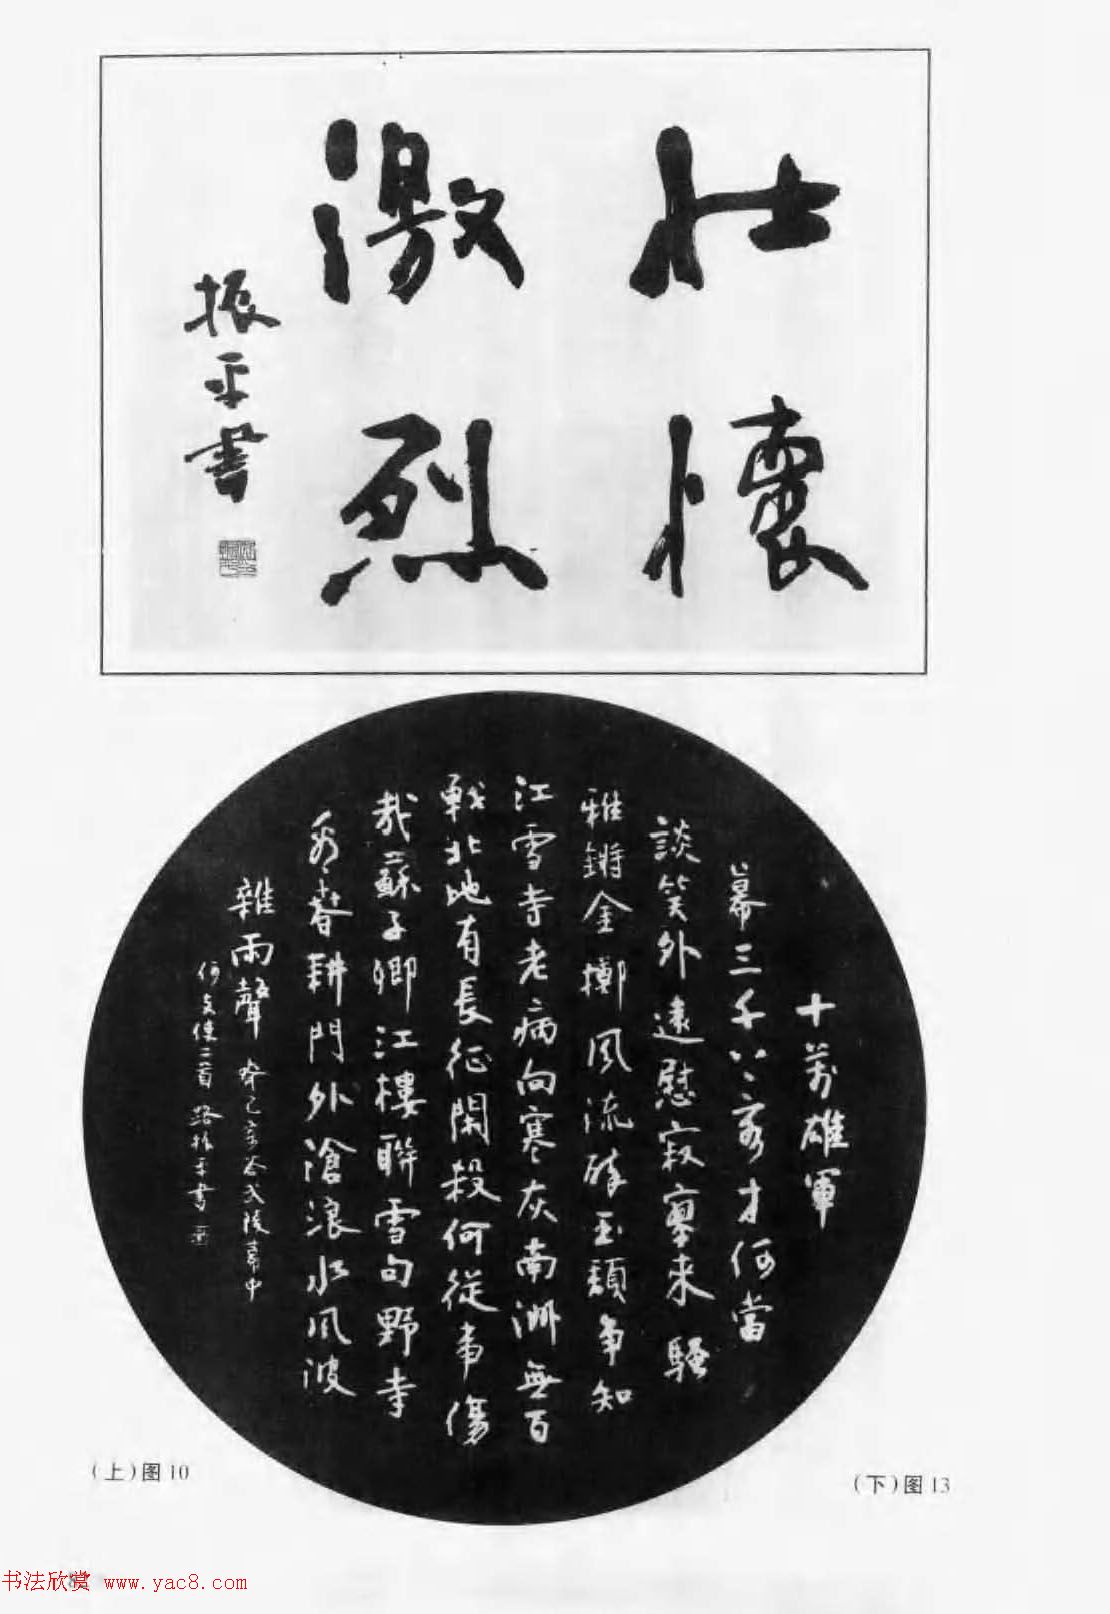 壮懷
激烈
振平書
十萬雄軍
幕三千八客才何當
談笑外遠慰寂寥來騷
雅鏘金擲風流碎玉頹争知
江雪寺老病向寒灰南洲無百
戰北地有長征閑殺何從事傷
哉蘇子卿江樓聯雪句野寺
看春耕門外滄浪水風波
雜雨聲 癸巳
何支使二首 路振平書
(上)图10
(下)图13
书法欣赏 www.yac8.com